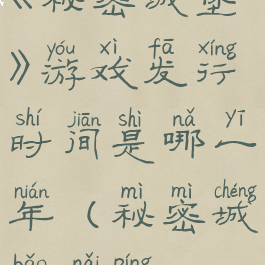 《秘密城堡
yóu xì fā xíng
》游戏发行
shí jiān shì nǎ yī
时间是哪一
nián mì mì chéng
年（秘密城
bǎo nǎi píng